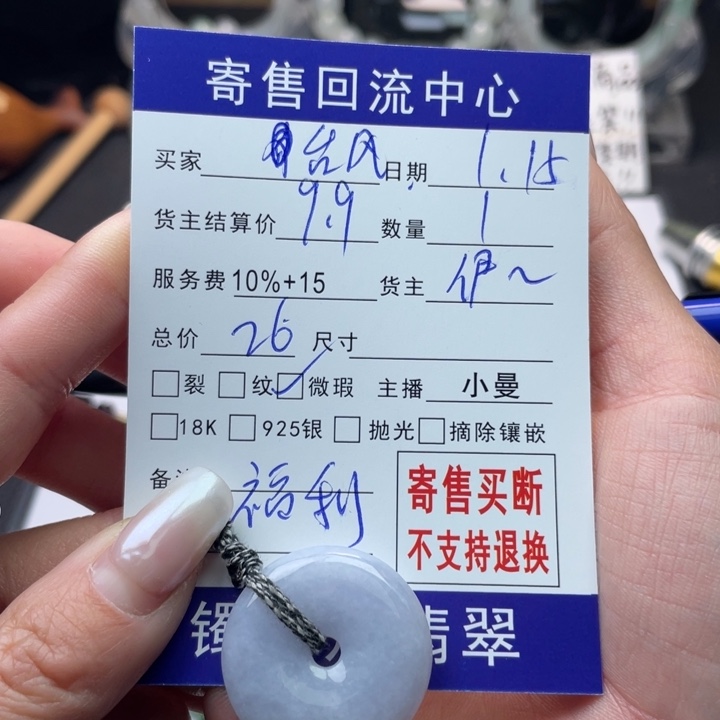 寄售回流中心
买家 台风 日期 1.15
货主结算价 9.9 数量 1
服务费 10%+15 货主 伊~
总价 26 尺寸
□裂 □纹 ☑微瑕 主播 小曼
□18K □925银 □抛光 □摘除镶嵌
备 福利
寄售买断
不支持退换
镯 翡翠